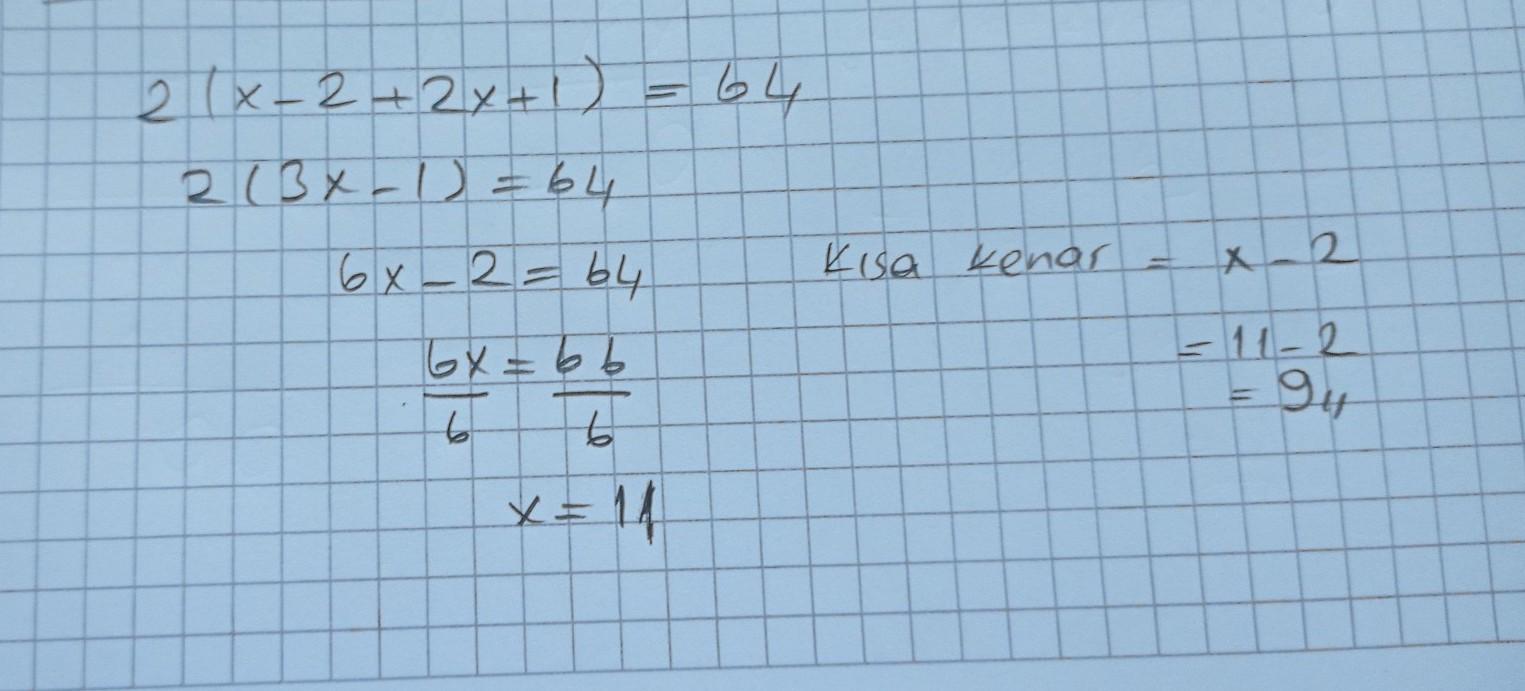 2(x-2+2x+1) = 64
2(3x-1) = 64
6x-2 = 64
6x/6 = 66/6
x = 11
Kısa kenar = x-2
= 11-2
= 9,,